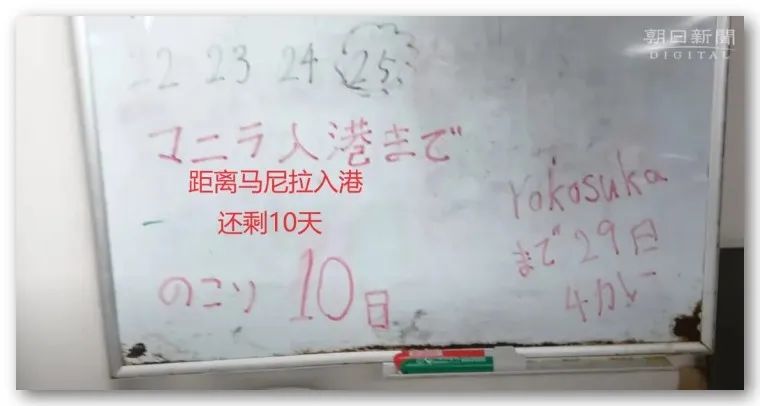 朝日新聞
DIGITAL
22 23 24 25
マニラ入港まで
距离马尼拉入港
还剩10天
のこり 10日
Yokosuka
まで29日